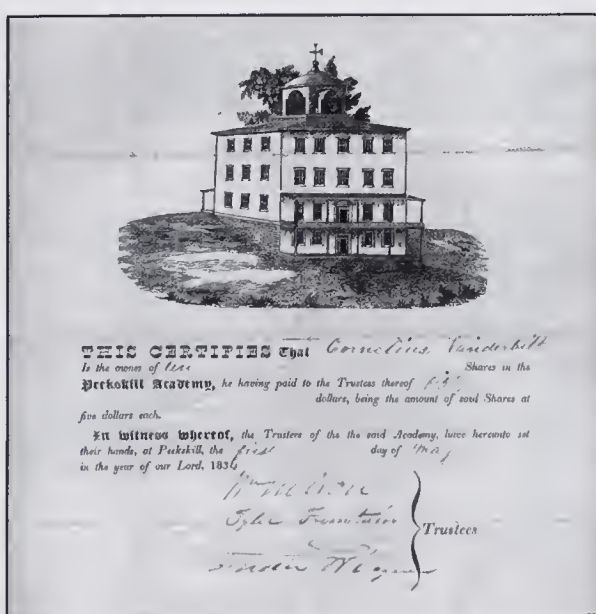 THIS CERTIFIES That Cornelius Vanderbilt
Is the owner of ten Shares in the
Peekskill Academy, he having paid to the Trustees thereof
dollars, being the amount of said Shares at
five dollars each.
In witness whereof, the Trustees of the the said Academy, have hereunto set
their hands, at Peekskill, the first day of May
in the year of our Lord, 183
Trustees